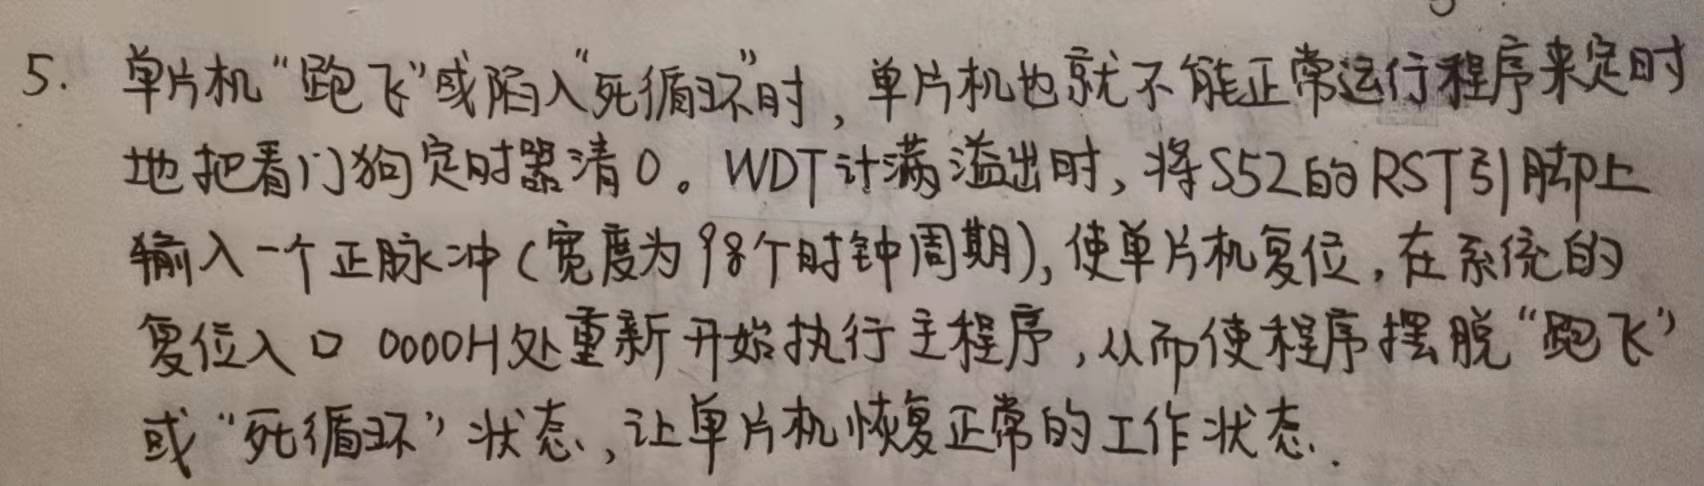 5. 单片机“跑飞”或陷入“死循环”时，单片机也就不能正常运行程序来定时
地把看门狗定时器清0。WDT计满溢出时，将S52的RST引脚上
输入一个正脉冲（宽度为98个时钟周期），使单片机复位，在系统的
复位入口 0000H处重新开始执行主程序，从而使程序摆脱“跑飞”
或“死循环”状态，让单片机恢复正常的工作状态.